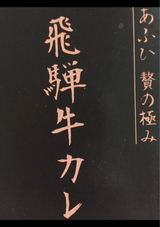 あふひ 贅の極み
飛騨牛カレ